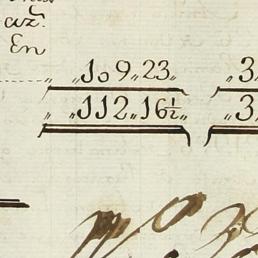 az.
En
„ „109„23„ „3
„ „112„16½„ „3